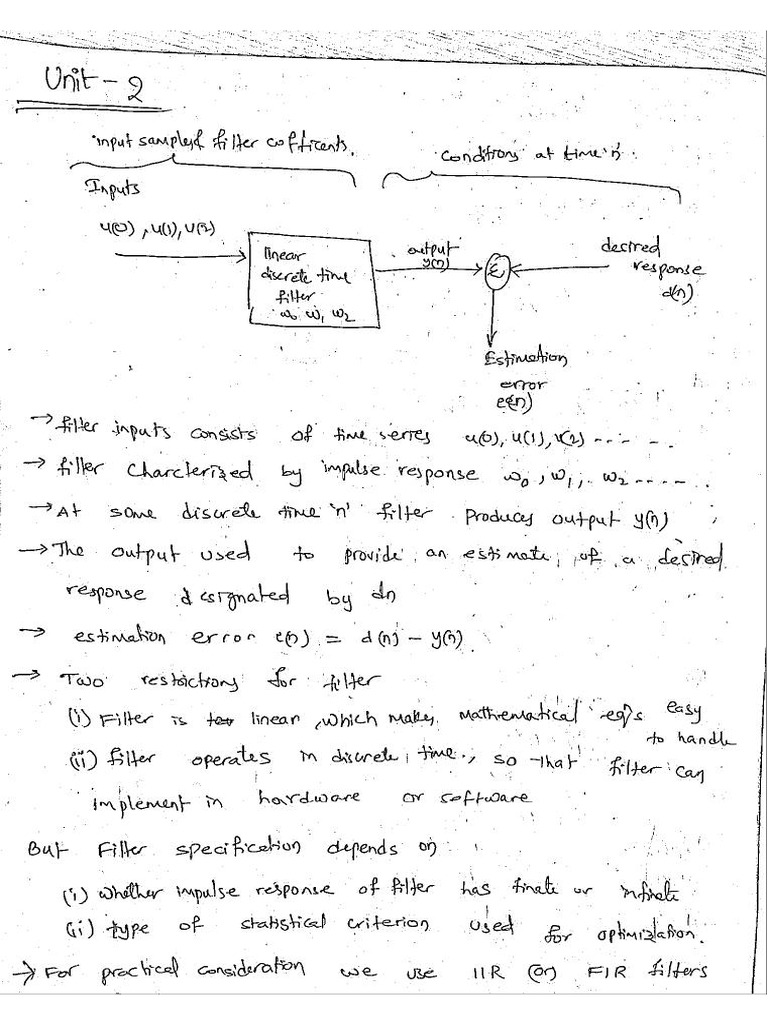 Unit - 2
input samples & filter cofficents.
Conditions at time 'n'.
Inputs
u(0), u(1), u(2)
linear
discrete time
filter
w0 w1 w2
output
y(n)
Σ
desired
response
d(n)
Estimation
error
e(n)
→ filter inputs consists of time series u(0), u(1), u(2) - - - - -
→ filter Charcterized by impulse response w0, w1, w2 - - - - -
→ At some discrete time 'n' filter produces output y(n)
→ The output used to provide an estimate of a desired
response designated by dn
→ estimation error e(n) = d(n) - y(n).
→ Two restrictions for filter
(i) Filter is linear, which makes mathematical eq's easy
to handle
(ii) filter operates in discrete, time, so that filter can
implement in hardware or software
But Filter specification depends on
(i) whether impulse response of filter has finate or infinate
(ii) type of statistical criterion used for optimization.
→ For practical consideration we use IIR (or) FIR filters